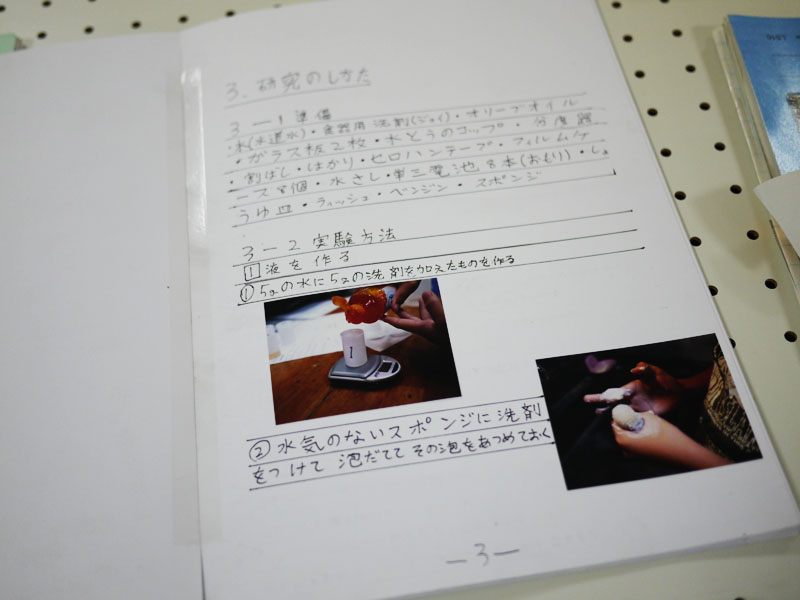 3. 研究のしかた
3-1 準備
・水(水道水)・食器用洗剤(ジョイ)・オリーブオイル
・ガラス板2枚・水とうのコップ・分度器
・割ばし・はかり・セロハンテープ・フィルムケ
ース8個・水さし・単三電池8本(おもり)・しょ
うゆ皿・ティッシュ・ベンジン・スポンジ
3-2 実験方法
1 液を作る
① 5gの水に5gの洗剤を加えたものを作る
1
② 水気のないスポンジに洗剤
をつけて 泡だてて その泡をあつめておく
-3-